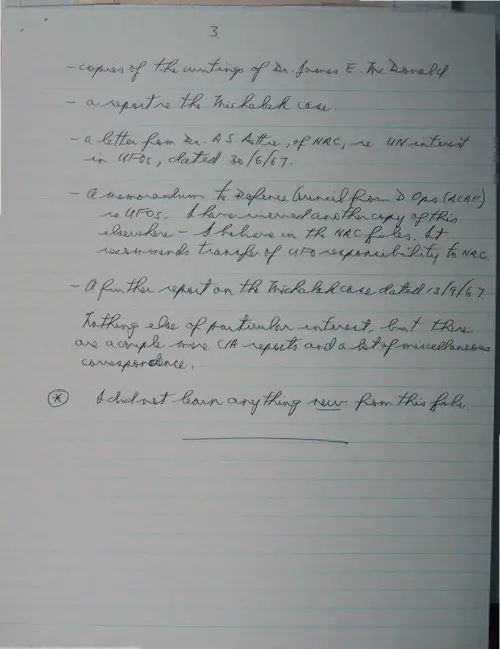 3
- copies of the writings of Dr. James E. McDonald
- a report re the Michalak case.
- a letter from Dr. A S , of NRC, re UN interest
in UFOs, dated 30/6/67.
- a memorandum to Defence Council from D Ops (RCAF)
re UFOs. I have viewed another copy of this
elsewhere - I believe in the NRC files. It
recommends transfer of UFO responsibility to NRC.
- A further report on the Michalak case dated 13/9/67.
Nothing else of particular interest, but there
are a couple more C/A reports and a lot of miscellaneous
correspondence.
* I did not learn anything new from this file.